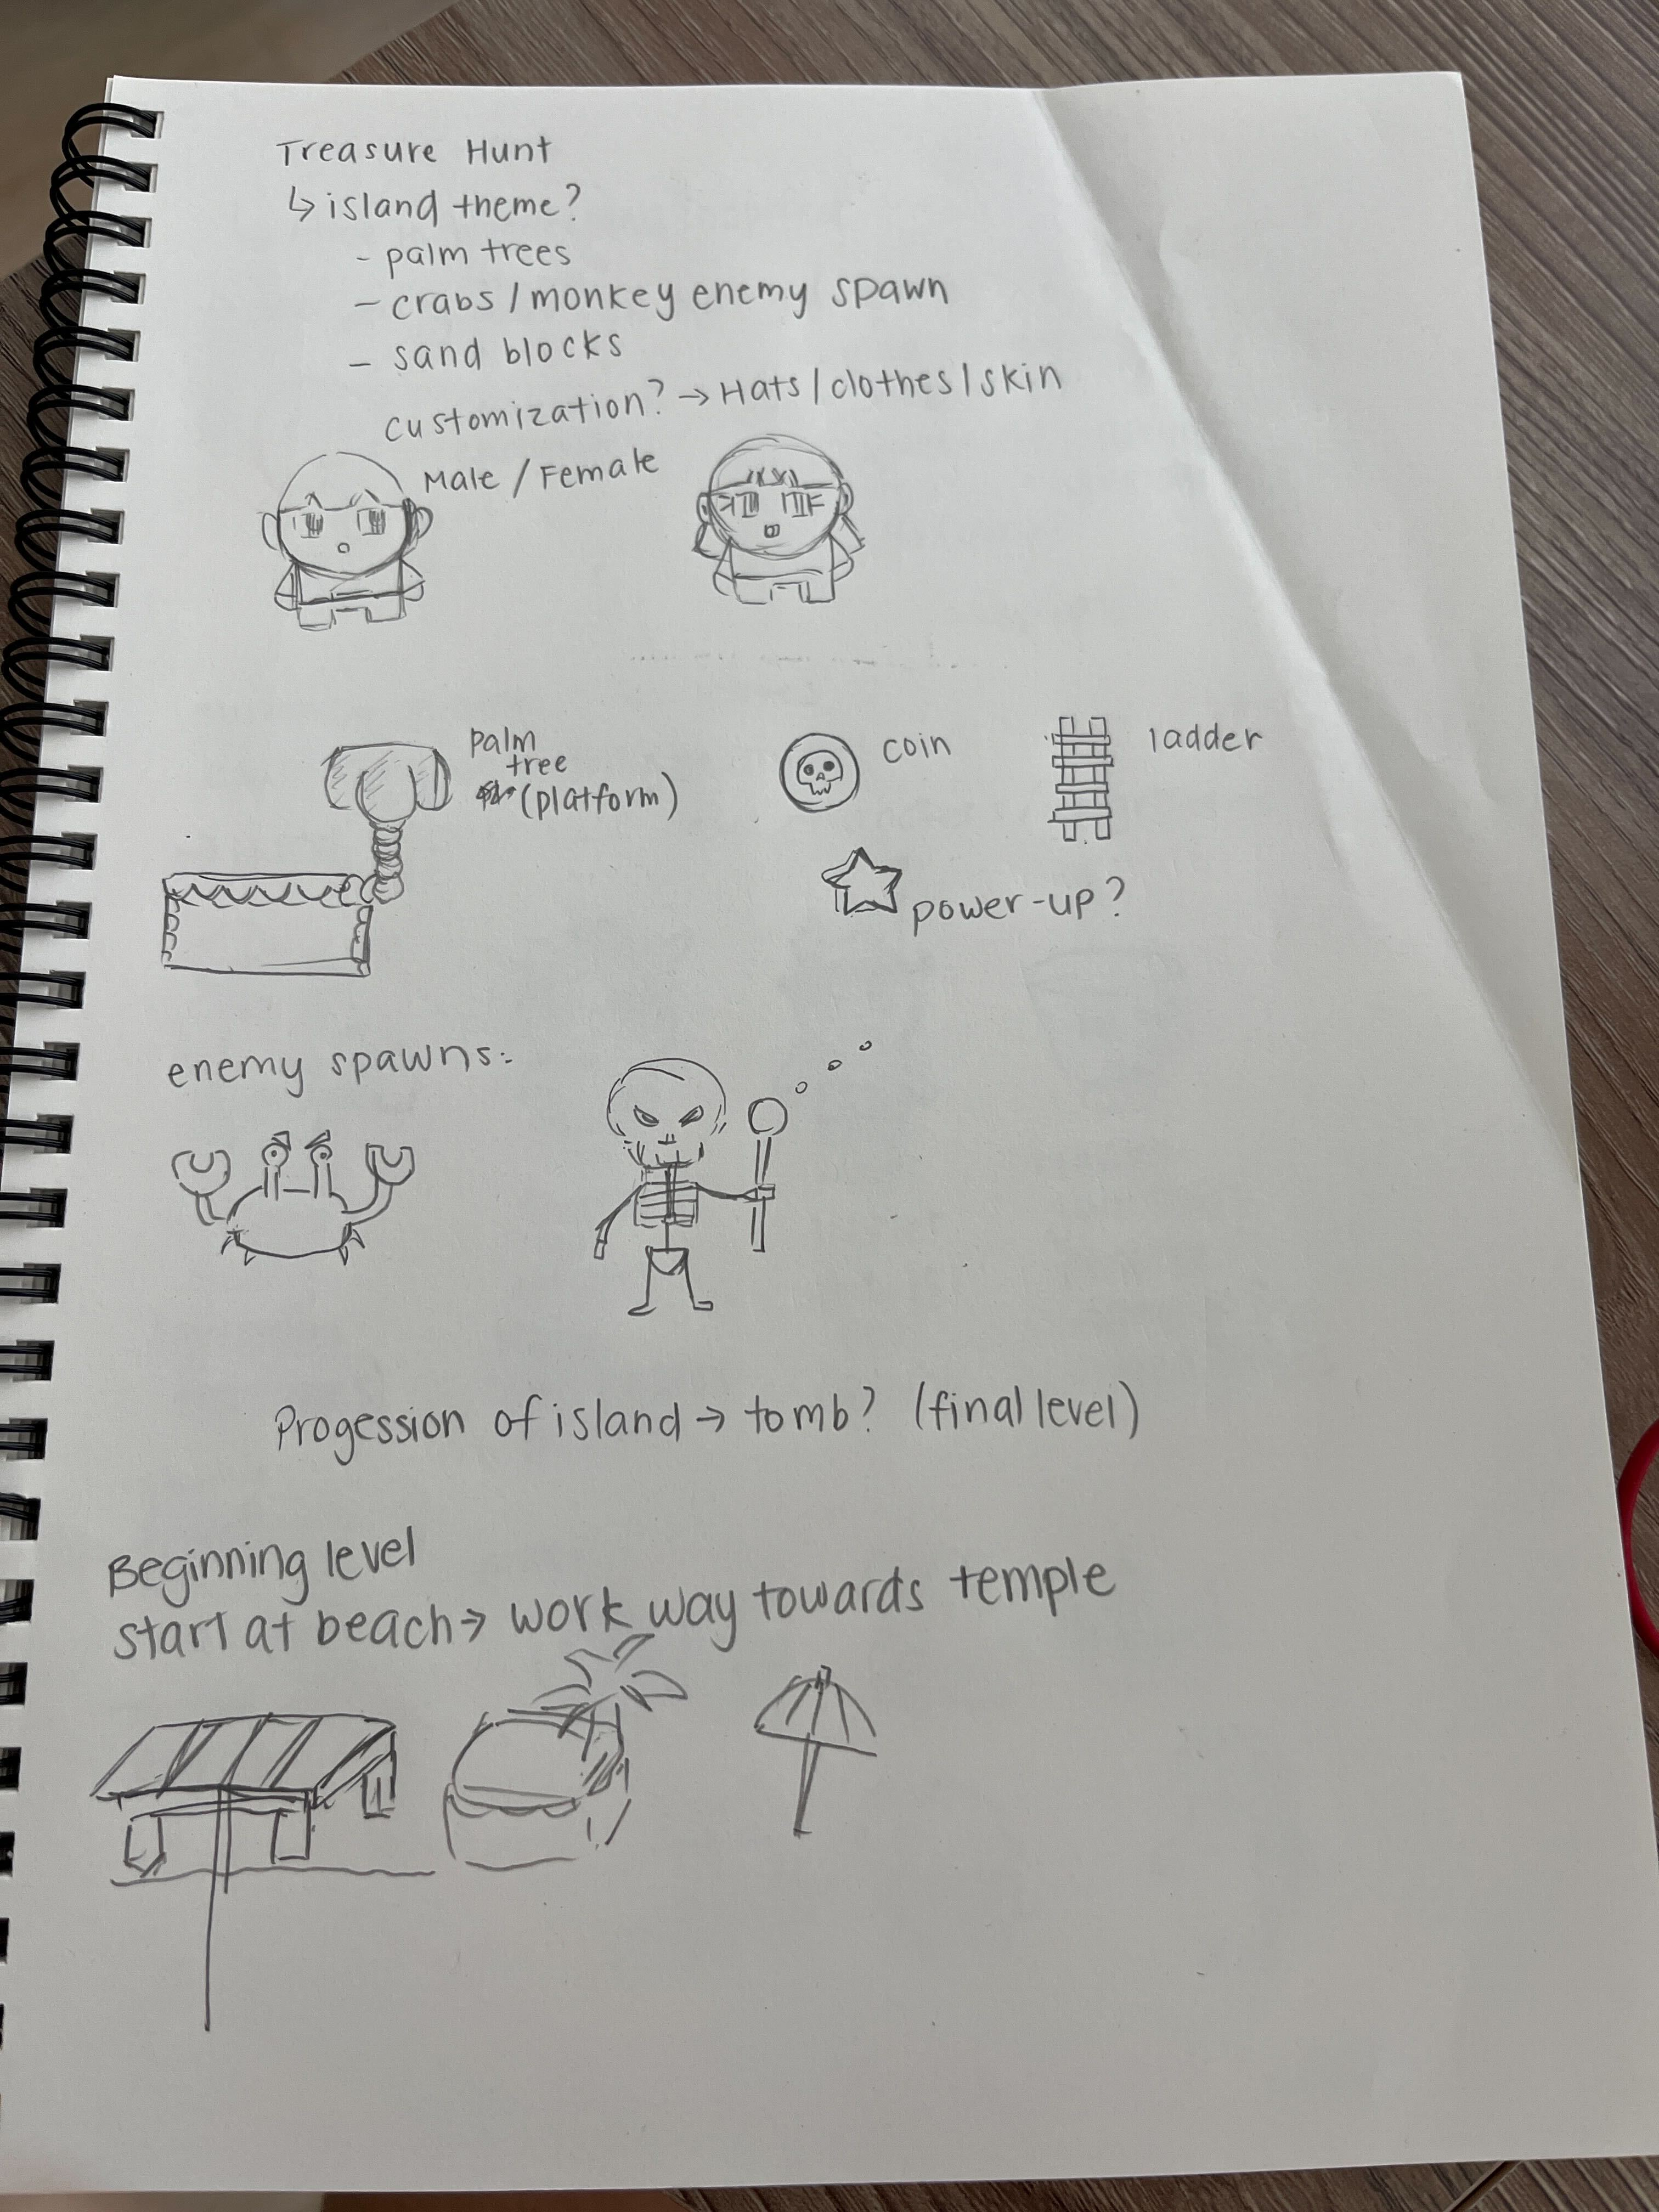 Treasure Hunt
↳ island theme?
- palm trees
- crabs / monkey enemy spawn
- sand blocks
customization? → Hats / clothes / skin
Male / Female
palm
tree
(platform)
coin
ladder
power-up?
enemy spawns:
Progession of island → tomb? (final level)
Beginning level
start at beach → work way towards temple